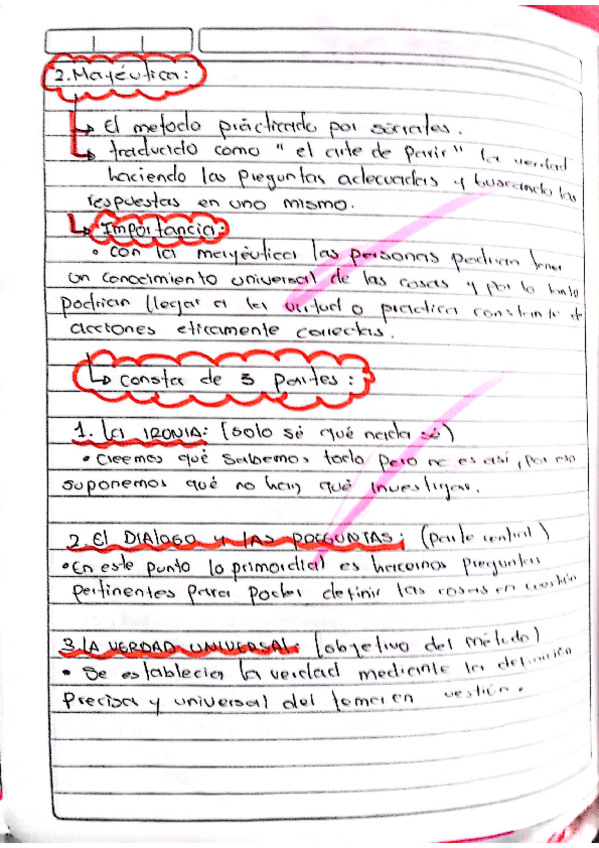 2. Mayéutica:
↳ El metodo prácticado por sócrates.
↳ traducido como " el arte de parir" la verdad
haciendo las preguntas adecuadas y buscando las
respuestas en uno mismo.
↳ Importancia:
• con la mayéutica las personas podrian tener
un conocimiento universal de las cosas y por lo tanto
podrian llegar a la virtud o practica constante de
acciones eticamente correctas.
↳ consta de 3 partes:
1. La IRONIA: (solo sé qué nada sé)
• Creemos qué sabemos todo pero no es así, por eso
suponemos qué no hay qué investigar.
2. El DIALOGO y LAS PREGUNTAS: (parte central)
• En este punto lo primordial es hacernos preguntas
pertinentes para poder definir las cosas en cuestión
3. LA VERDAD UNIVERSAL: (objetivo del método)
• Se establecia la verdad mediante la definición
precisa y universal del tema en uestión.